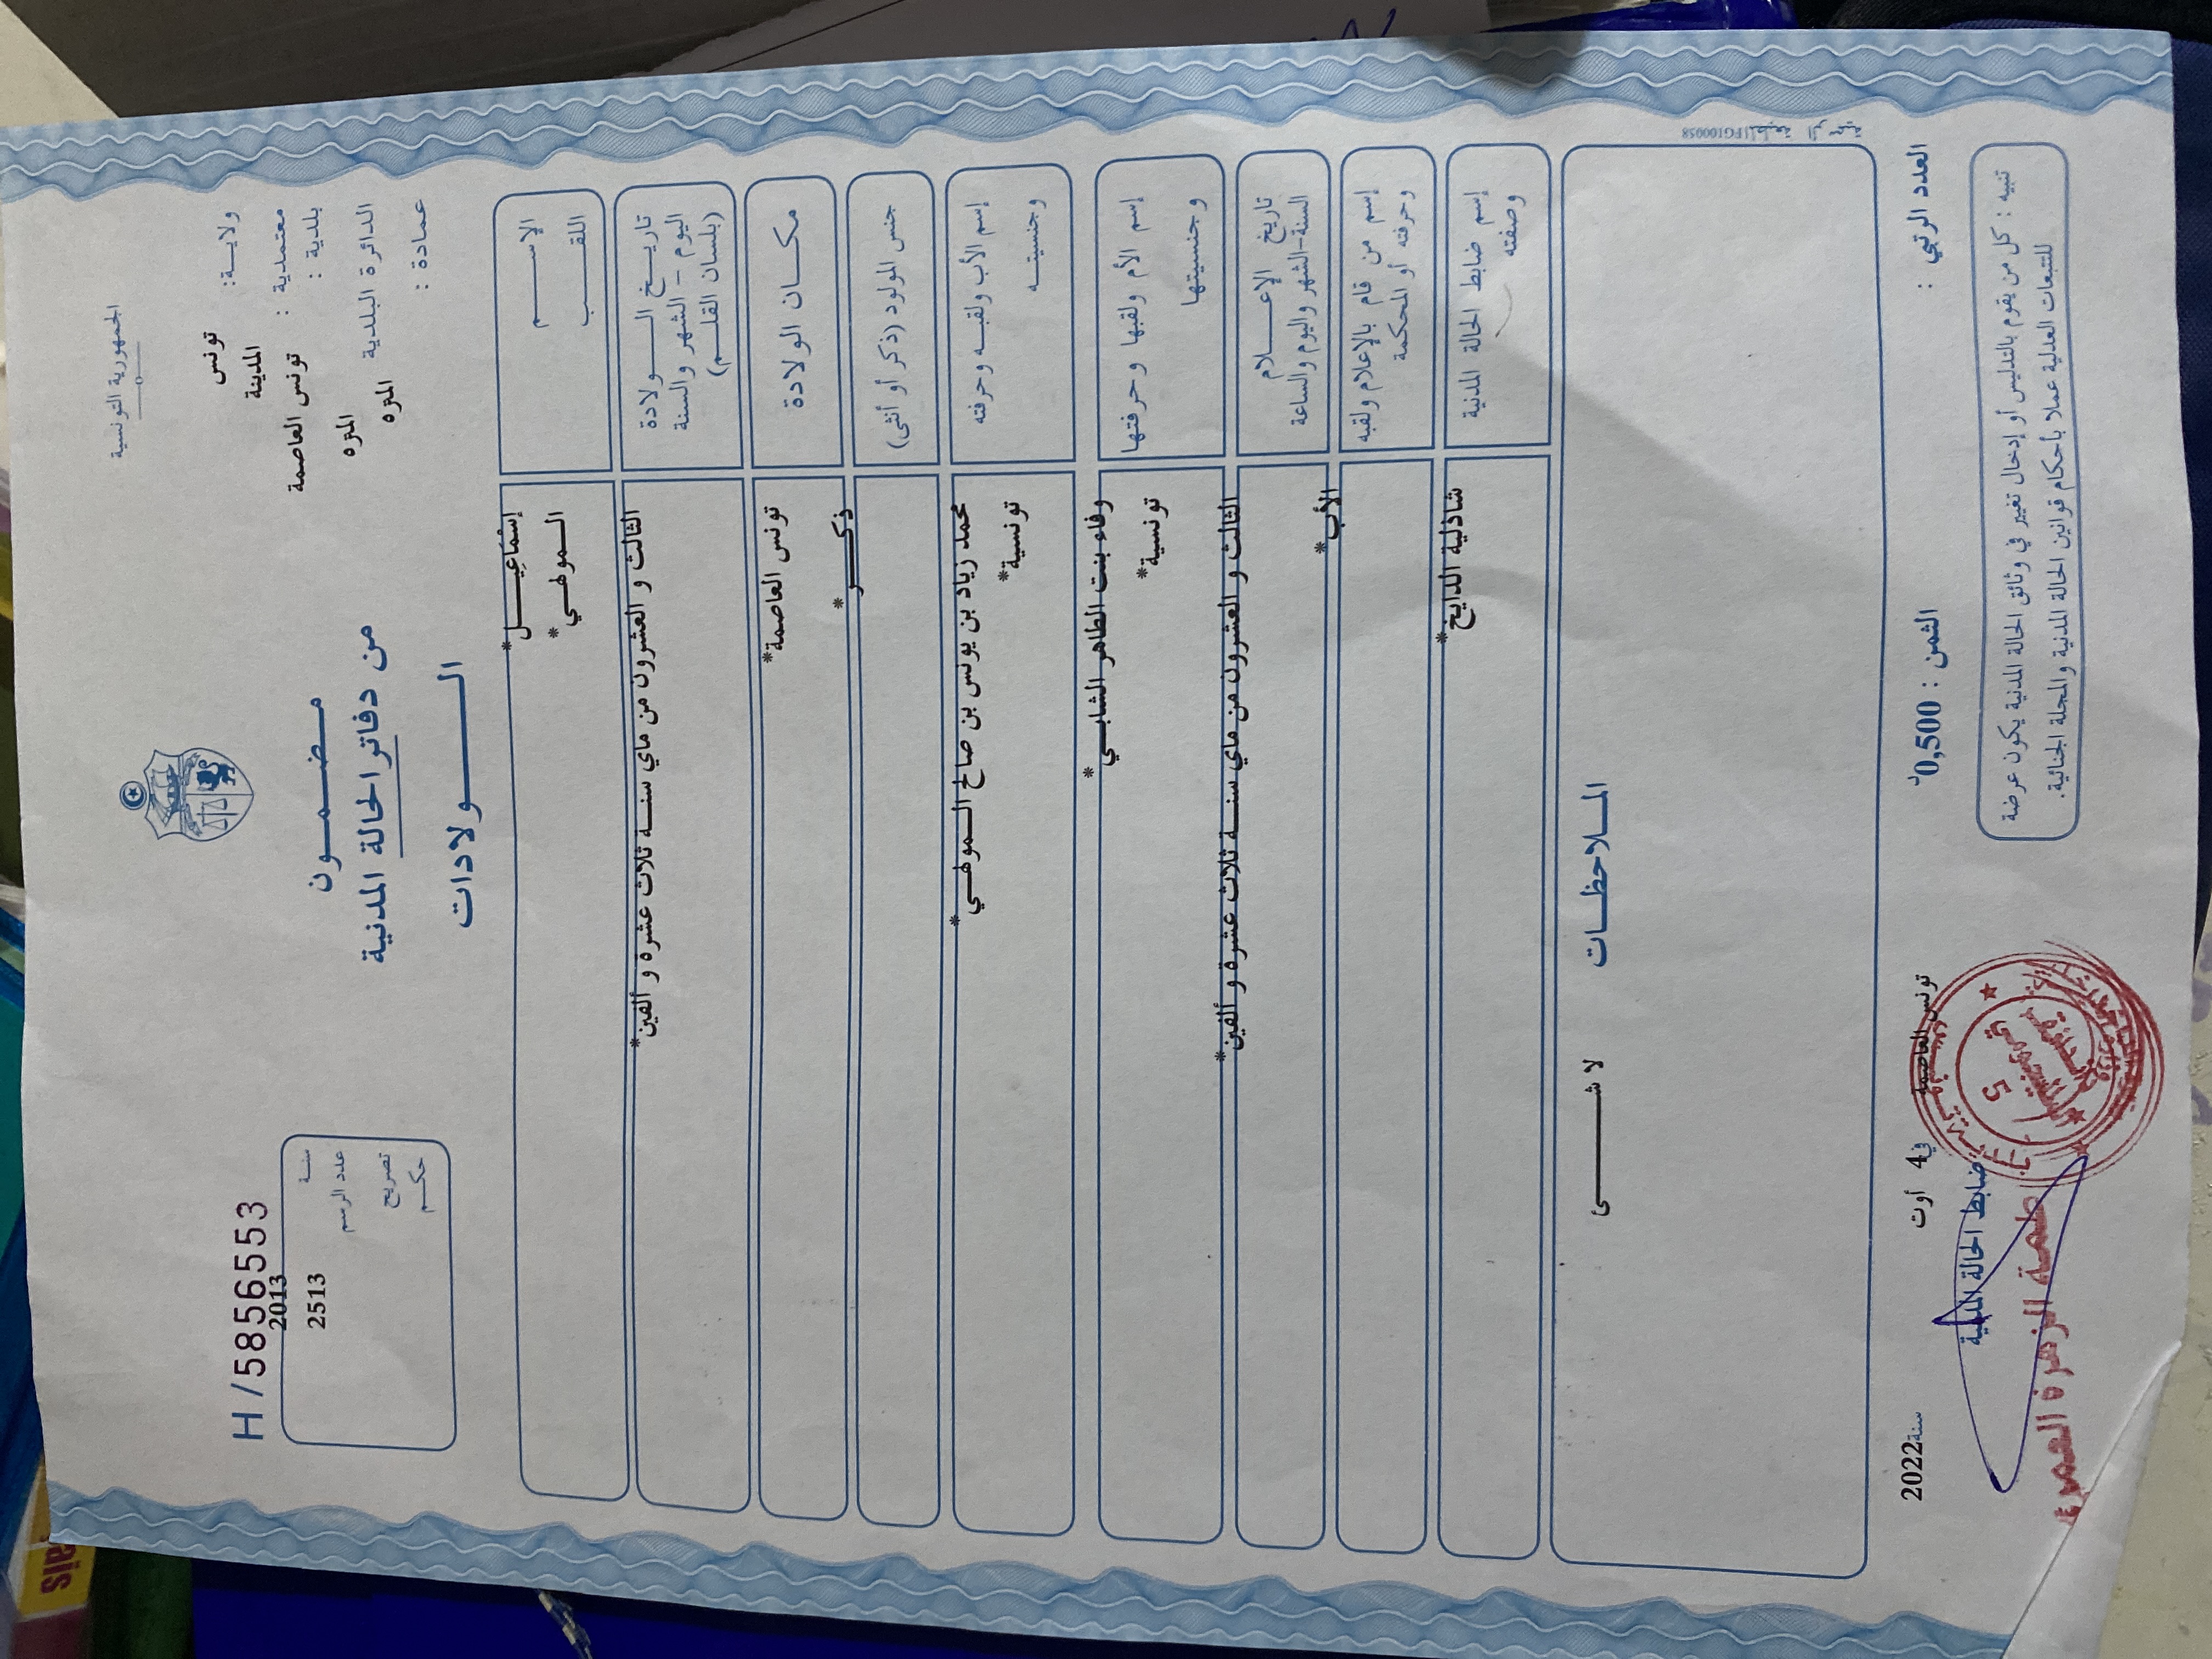 الجمهورية التونسية
ولاية: تونس
معتمدية : المدينة
بلدية : تونس العاصمة
الدائرة البلدية المنزه
عمادة : المنزه
مضمون
من دفاتر الحالة المدنية
الولادات
H/5856553
سنة 2013
عدد الرسم 2513
تصريح
حكم
الإسم إسماعيل*
اللقب المولهي*
تاريخ الولادة
اليوم - الشهر والسنة
(بلسان القلم)
الثالث و العشرون من ماي سنة ثلاث عشرة و ألفين*
مكان الولادة تونس العاصمة*
جنس المولود (ذكر أو أنثى) ذكر*
إسم الأب ولقبه وحرفته
وجنسيته
محمد زياد بن يونس بن صالح المولهي*
تونسية*
إسم الأم ولقبها وحرفتها
وجنسيتها
وفاء بنت الطاهر الشابي*
تونسية*
تاريخ الإعلام
السنة-الشهر واليوم والساعة
الثالث و العشرون من ماي سنة ثلاث عشرة و ألفين*
إسم من قام بالإعلام ولقبه
وحرفته أو المحكمة
الأب*
إسم ضابط الحالة المدنية
وصفته
شاذلية الدايخ*
الملاحظات
لا شئ
PG100058
العدد الرتبي :
الثمن : 0,500د
تونس العاصمة في 4 أوت سنة 2022
ضابط الحالة المدنية
تنبيه : كل من يقوم بالتدليس أو إدخال تغيير في وثائق الحالة المدنية يكون عرضة
للتتبعات العدلية عملا بأحكام قوانين الحالة المدنية والمجلة الجنائية.
5